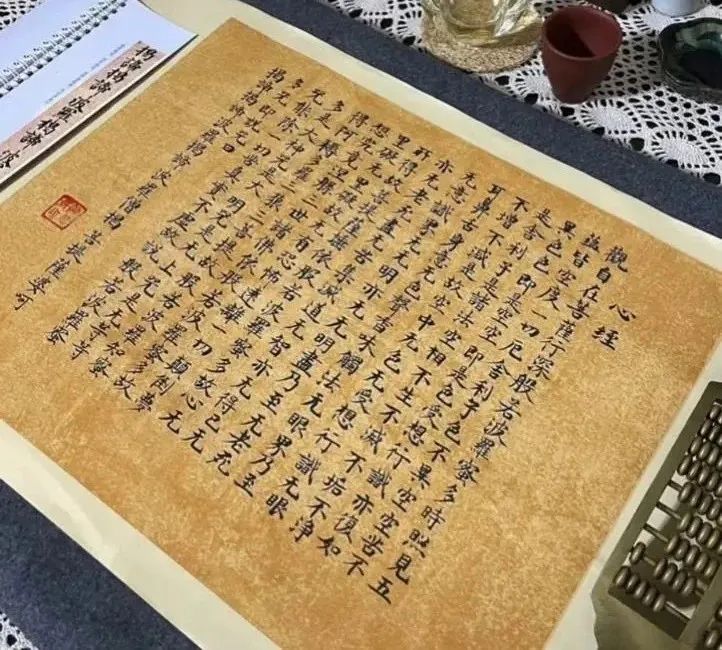 心經
觀自在菩薩行深般若波羅蜜多時照見五
蘊皆空度一切厄舍利子色不異空不
異色色即是空空即是色受想行識亦復如
是舍利子是諸法空相不生不滅不垢不淨
不增不減是故空中无色无受想行識无眼
耳鼻舌身意无色聲香味觸法无眼界乃至
无意識界无无明亦无无明盡乃至无老死
亦无老死盡无苦集滅道无智亦无得已无
所得故菩提薩埵依般若波羅蜜多故心无
罣礙无罣礙故无有恐怖遠離一切顛倒夢
想究竟涅槃三世諸佛依般若波羅蜜多故
得阿耨多羅三藐三菩提故知般若波羅蜜
多是大神咒是大明咒是无上咒是无等等
咒能除一切苦真實不虛故說般若波羅蜜
多咒即說咒曰
揭諦揭諦波羅揭諦波羅僧揭菩提薩婆呵
揭諦揭諦波羅揭諦